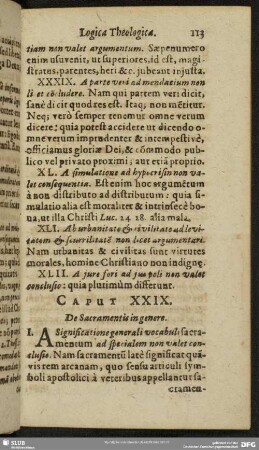 Logica Theologica. 113
tiam non valet argumentum. Sæpenumero
enim usuvenit, ut superiores, id est, magi-
stratus, parentes, heri &c. jubeant injusta.
XXXIX. A parte veri ad mendacium non
licet cōcludere. Nam qui partem veri dicit,
sanè dicit quod res est. Itaq; non mētitur.
Neq; verò semper tenemur omne verum
dicere; quia potest accidere ut dicendo o-
mne verum imprudenter & intempestivè,
officiamus gloriæ Dei, & cōmodo pu-
blico vel privato proximi, aut etiā proprio.
XL. A simulatione ad hypocrisin non va-
let consequentia. Est enim hoc argumētum
à non distributo ad distributum: quia si-
mulatio alia est moraliter & intrinsecè bo-
na, ut illa Christi Luc. 24. 28. alia mala.
XLI. Ab urbanitate & civilitate ad levi-
tatem & scurrilitatē non licet argumentari.
Nam urbanitas & civilitas sunt virtutes
morales, homine Christiano non indignę.
XLII. A jure fori ad jus poli non valet
conclusio: quia plurimùm differunt.
CAPUT XXIX.
De Sacramentis in genere.
I. A Significatione generali vocabuli sacra-
mentum ad specialem non valet con-
clusio. Nam sacramentū latè significat quā-
vis rem arcanam, quo sensu articuli symbo-
li apostolici à veteribus appellantur sa-
cramen-
SLUB